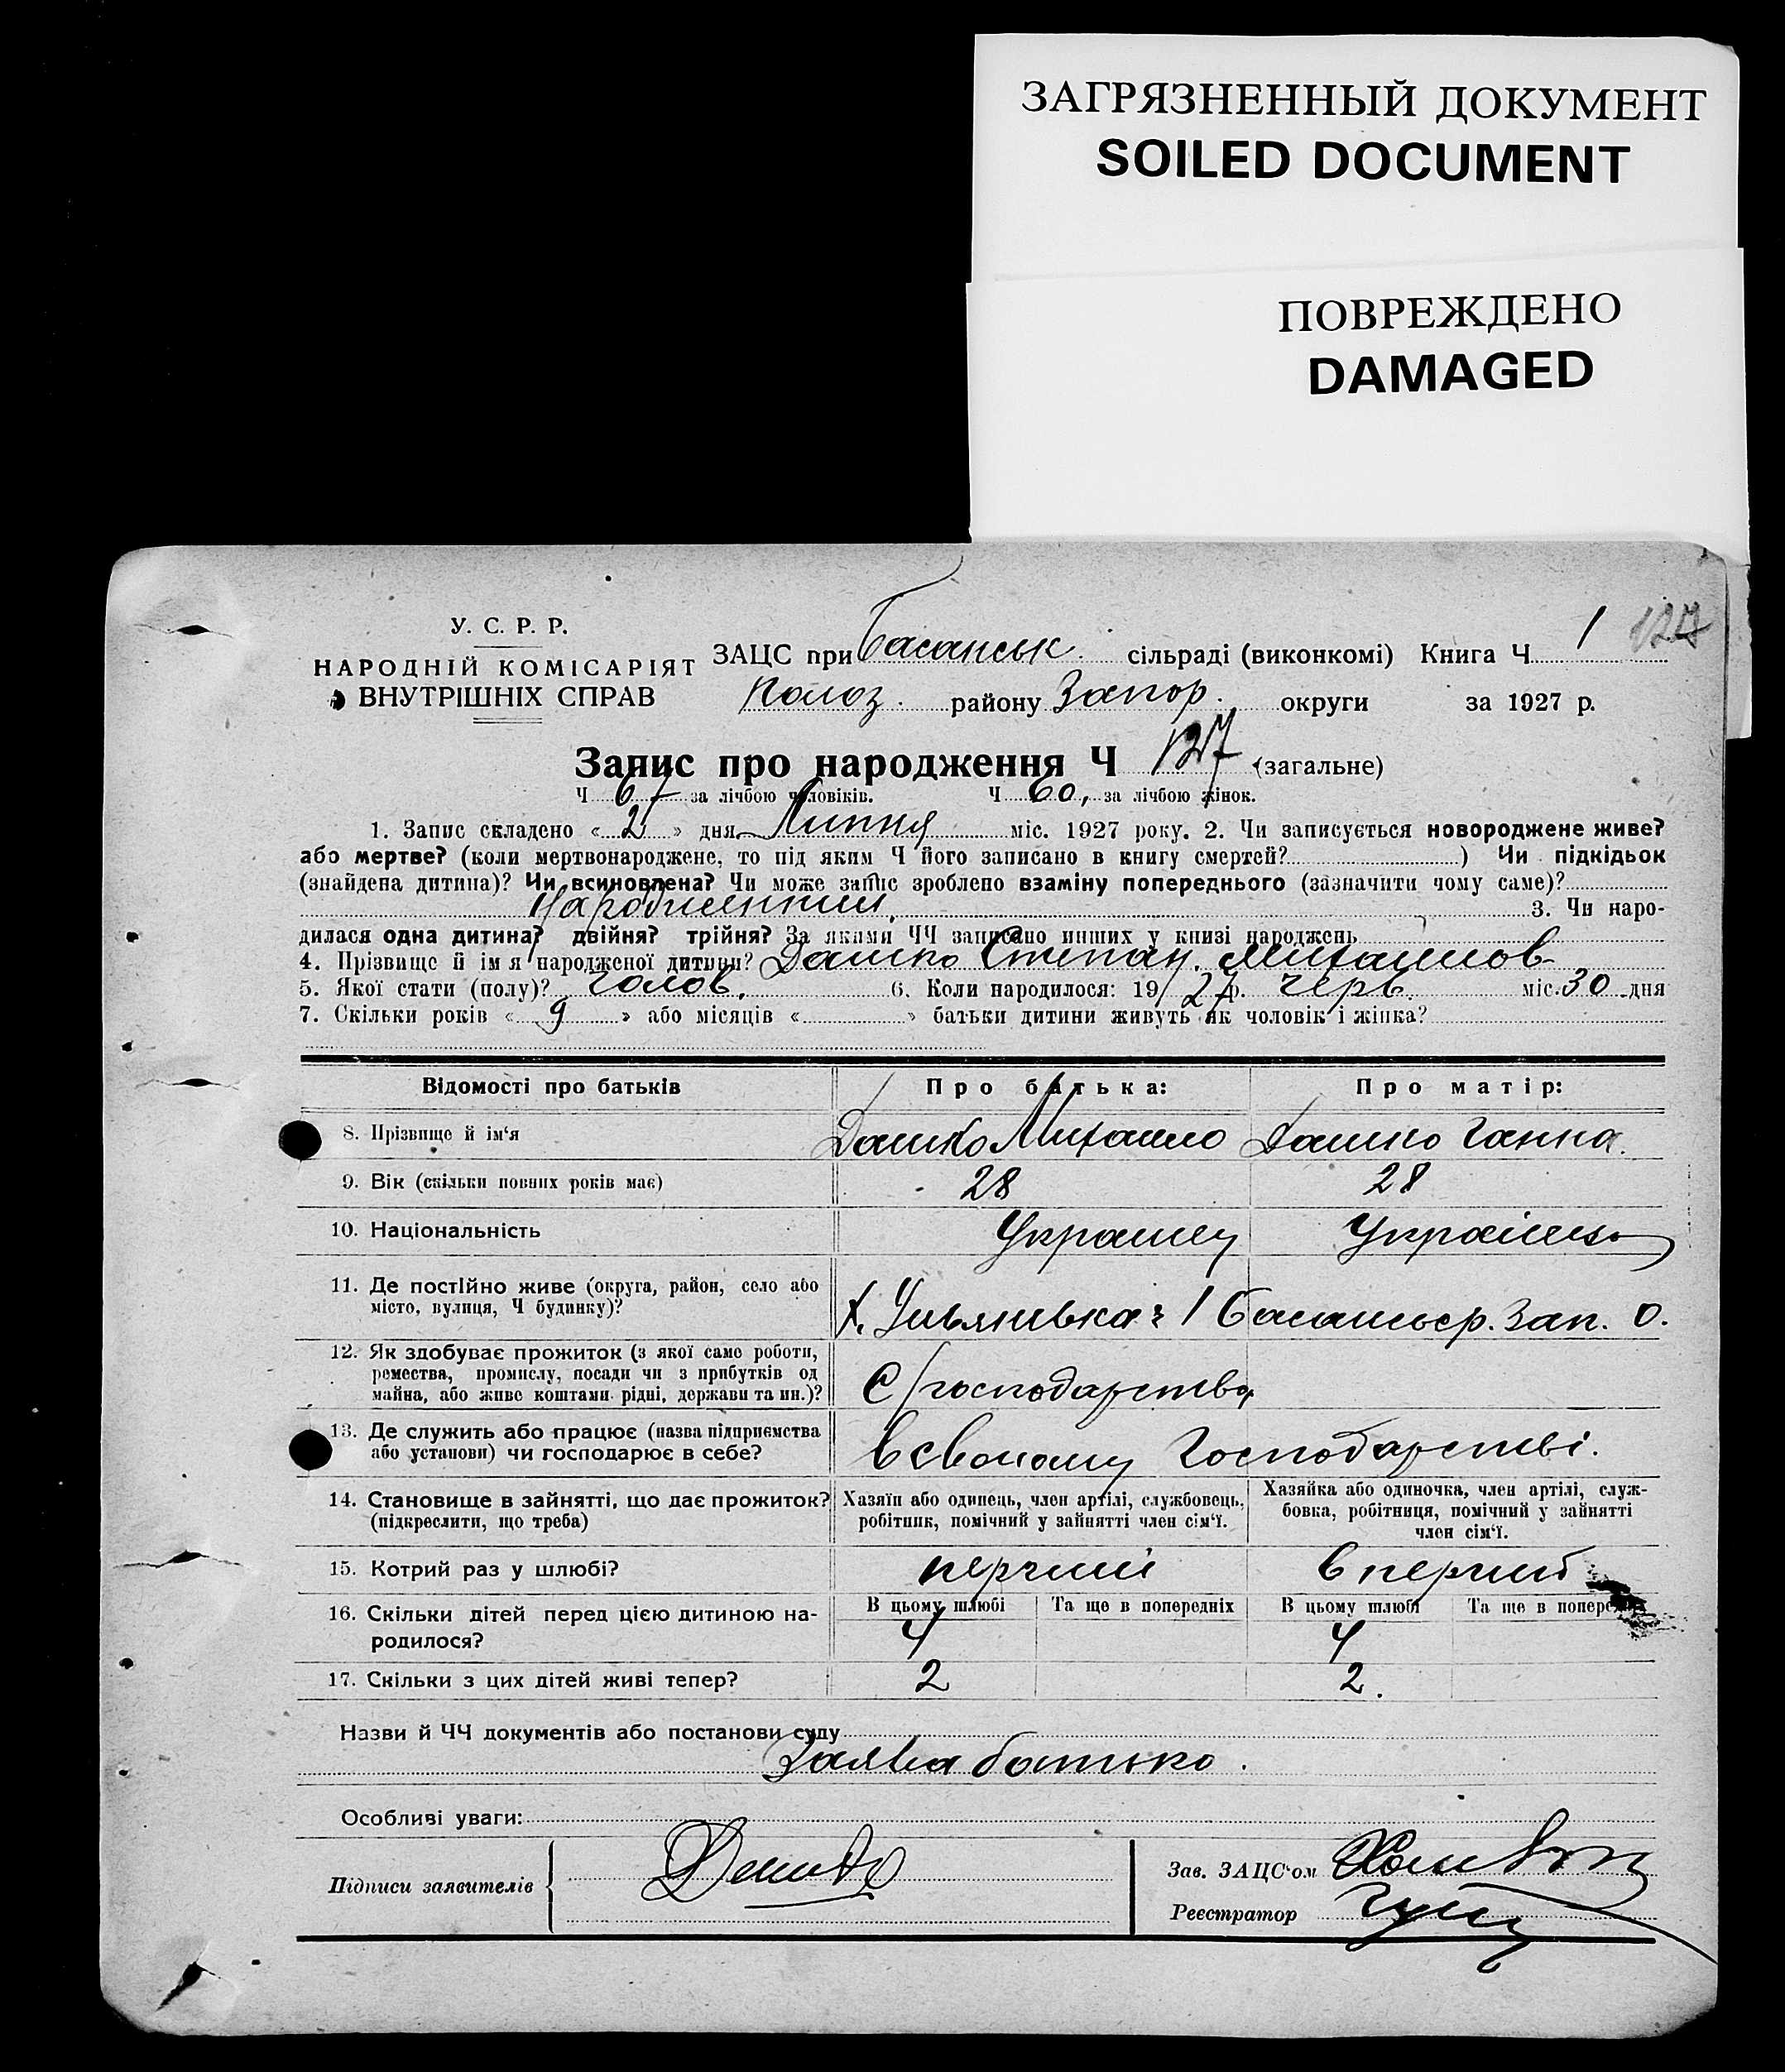 ЗАГРЯЗНЕННЫЙ ДОКУМЕНТ
SOILED DOCUMENT
ПОВРЕЖДЕНО
DAMAGED
У. С. Р. Р.
НАРОДНІЙ КОМІСАРІЯТ
ВНУТРІШНІХ СПРАВ
ЗАЦС при Басанськ. сільраді (виконкомі) Книга Ч 1 127
Полоз. району Запор. округи за 1927 р.
Запис про народження Ч 127 (загальне)
Ч 67 за лічбою чоловіків. Ч 60, за лічбою жінок.
1. Запис складено « 2 » дня Липня міс. 1927 року. 2. Чи записується новороджене живе?
або мертве? (коли мертвонароджене, то під яким Ч його записано в книгу смертей? ) Чи підкідьок
(знайдена дитина)? Чи всиновлена? Чи може запис зроблено взаміну попереднього (зазначити чому саме)?
3. Чи наро-
дилася одна дитина? двійня? трійня? За якими ЧЧ записано инших у книзі народжень
4. Прізвище й ім я народженої дитини? Дашко Степан. Михайлов
5. Якої стати (полу)? Чолов. 6. Коли народилося: 19/27р. Черв. міс. 30 дня
7. Скільки років « 9 » або місяців « » батьки дитини живуть як чоловік і жінка?
Відомості про батьків Про батька: Про матір:
8. Прізвище й ім‘я Дашко Михайло Дашко Ганна.
9. Вік (скільки повних років має) 28 28
10. Національність Украінец Украінка
11. Де постійно живе (округа, район, село або
місто, вулиця, Ч будинку)?
х. Ульянивка ч 1 Зап. О.
12. Як здобуває прожиток (з якої само роботи,
ремества, промислу, посади чи з прибутків од
майна, або живе коштами рідні, держави та ин.)?
С/господарства
13. Де служить або працює (назва підприємства
або установи) чи господарює в себе?
В своєму Господарстві.
14. Становище в зайнятті, що дає прожиток?
(підкреслити, що треба)
Хазяїн або одинець, член артілі, службовець,
робітник, помічний у зайнятті член сім‘ї.
Хазяйка або одиночка, член артілі, служ-
бовка, робітниця, помічний у зайнятті
член сім‘ї.
15. Котрий раз у шлюбі? перчий в перший
16. Скільки дітей перед цією дитиною на-
родилося?
В цьому шлюбі Та ще в попередніх В цьому шлюбі Та ще в попере
4 4
17. Скільки з цих дітей живі тепер? 2 2.
Назви й ЧЧ документів або постанови суду
Заява батька.
Особливі уваги:
Підписи заявителів
Зав. ЗАЦС‘ом
Реєстратор